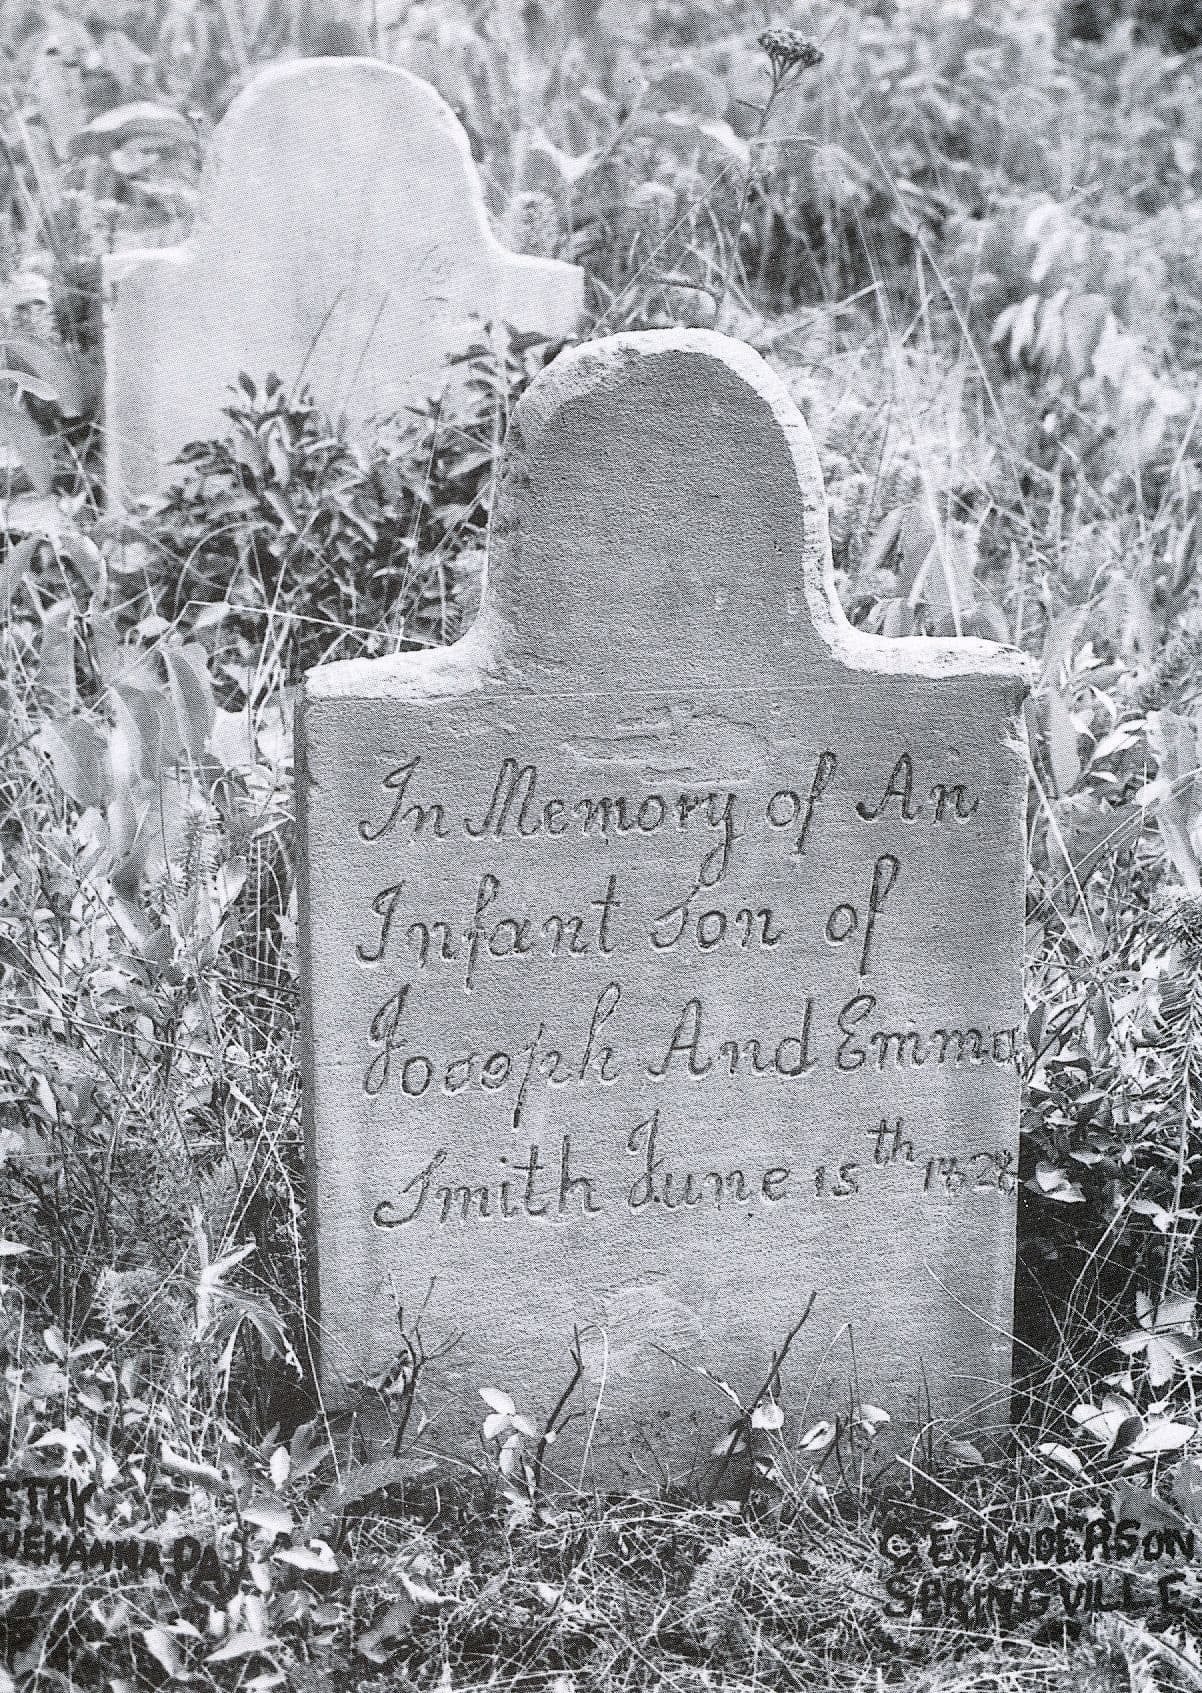 In Memory of An
Infant Son of
Joseph And Emma
Smith June 15th 1828
ETRY
UEHANNA PA
C E ANDERSON
SPRINGVILLE